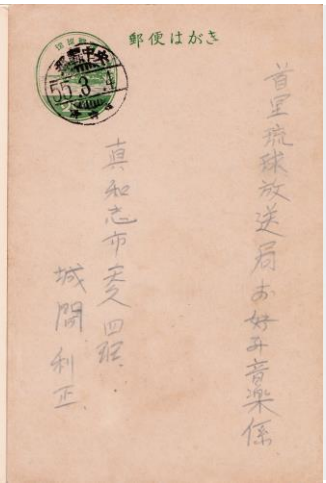 郵便はがき
那覇中央
55.3.4
首里琉球放送局お好み音楽係
真和志市安久四班
城間利正